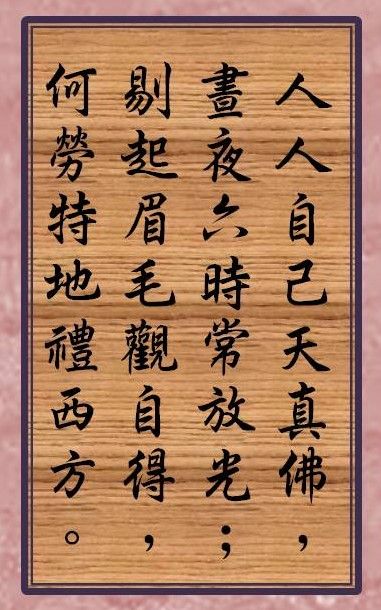 人人自己天真佛，
晝夜六時常放光；
剔起眉毛觀自得，
何勞特地禮西方。